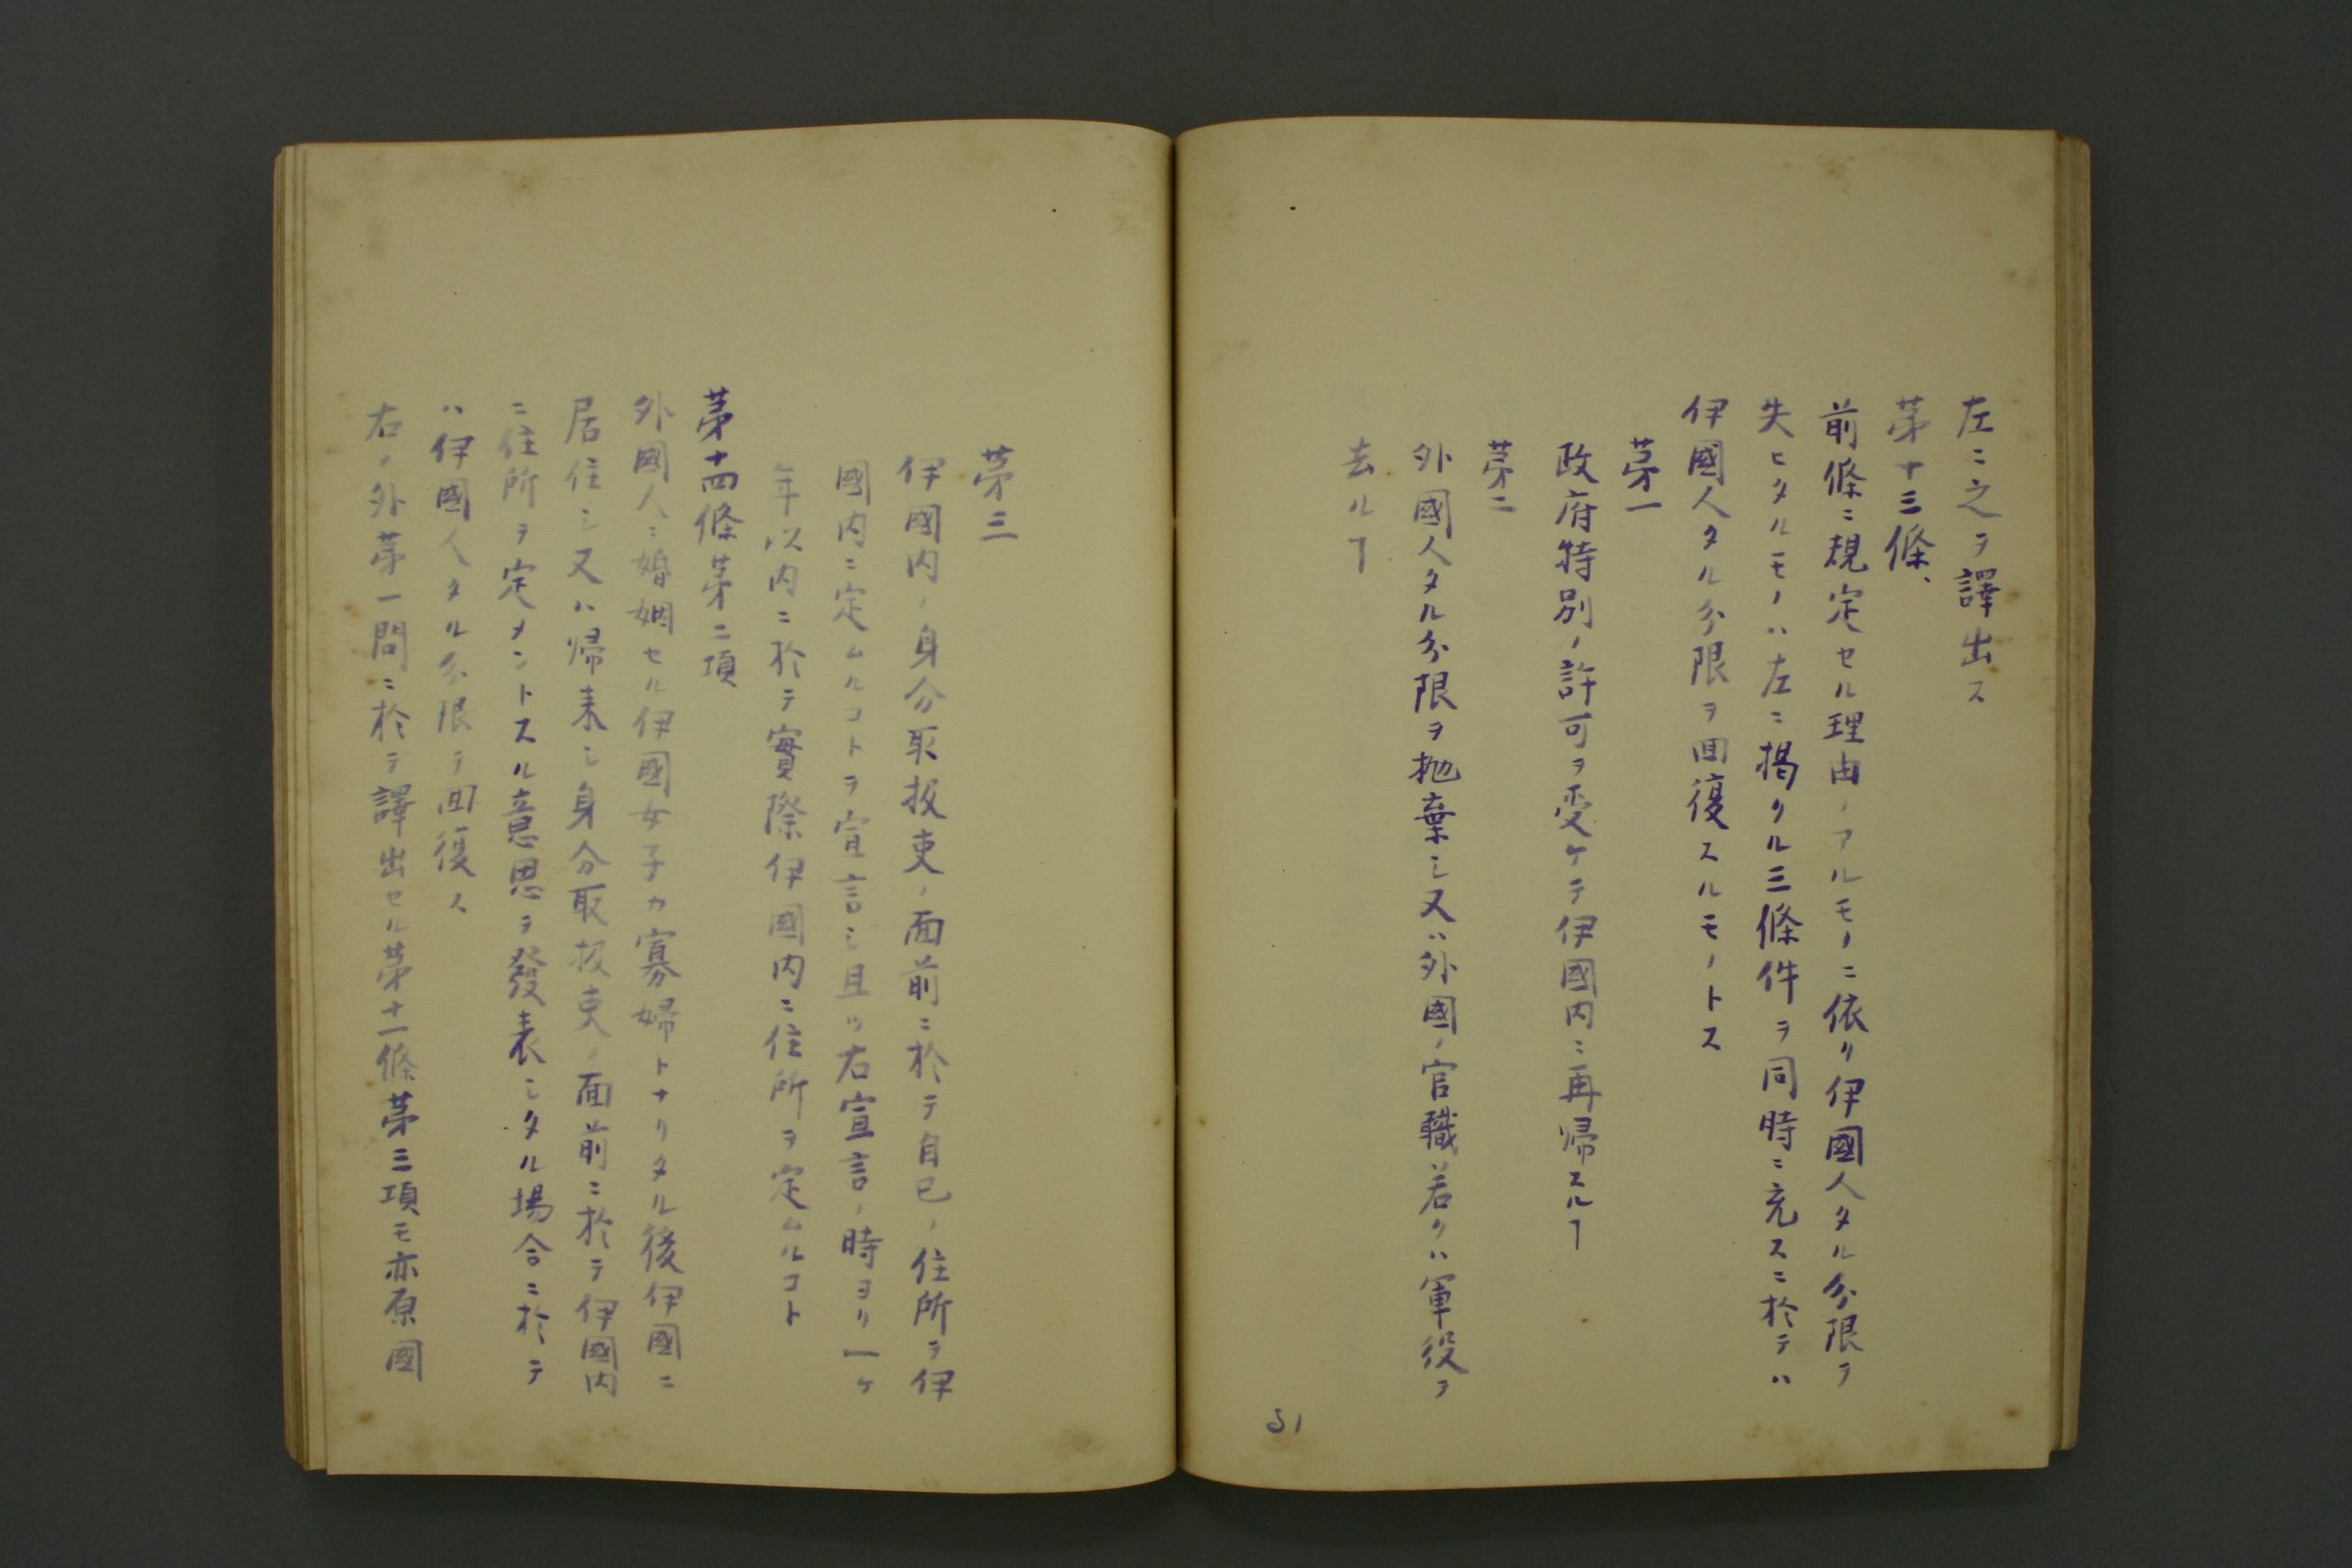 左ニ之ヲ譯出ス
第十三條、
前條ニ規定セル理由ノアルモノニ依リ伊國人タル分限ヲ
失ヒタルモノハ左ニ掲クル三條件ヲ同時ニ充スニ於テハ
伊國人タル分限ヲ回復スルモノトス
第一
政府特別ノ許可ヲ受ケテ伊國内ニ再帰スルヿ
第二
外國人タル分限ヲ抛棄シ又ハ外國ノ官職若クハ軍役ヲ
去ルヿ
51
第三
伊國内ノ身分取扱吏ノ面前ニ於テ自己ノ住所ヲ伊
國内ニ定ムルコトヲ宣言シ且ツ右宣言ノ時ヨリ一ケ
年以内ニ於テ實際伊國内ニ住所ヲ定ムルコト
第十四條第二項
外國人ニ婚姻セル伊國女子カ寡婦トナリタル後伊國ニ
居住シ又ハ帰来シ身分取扱吏ノ面前ニ於テ伊國内
ニ住所ヲ定メントスル意思ヲ發表シタル場合ニ於テ
ハ伊國人タル分限ヲ回復ス
右ノ外第一問ニ於テ譯出セル第十一條第三項モ亦原國